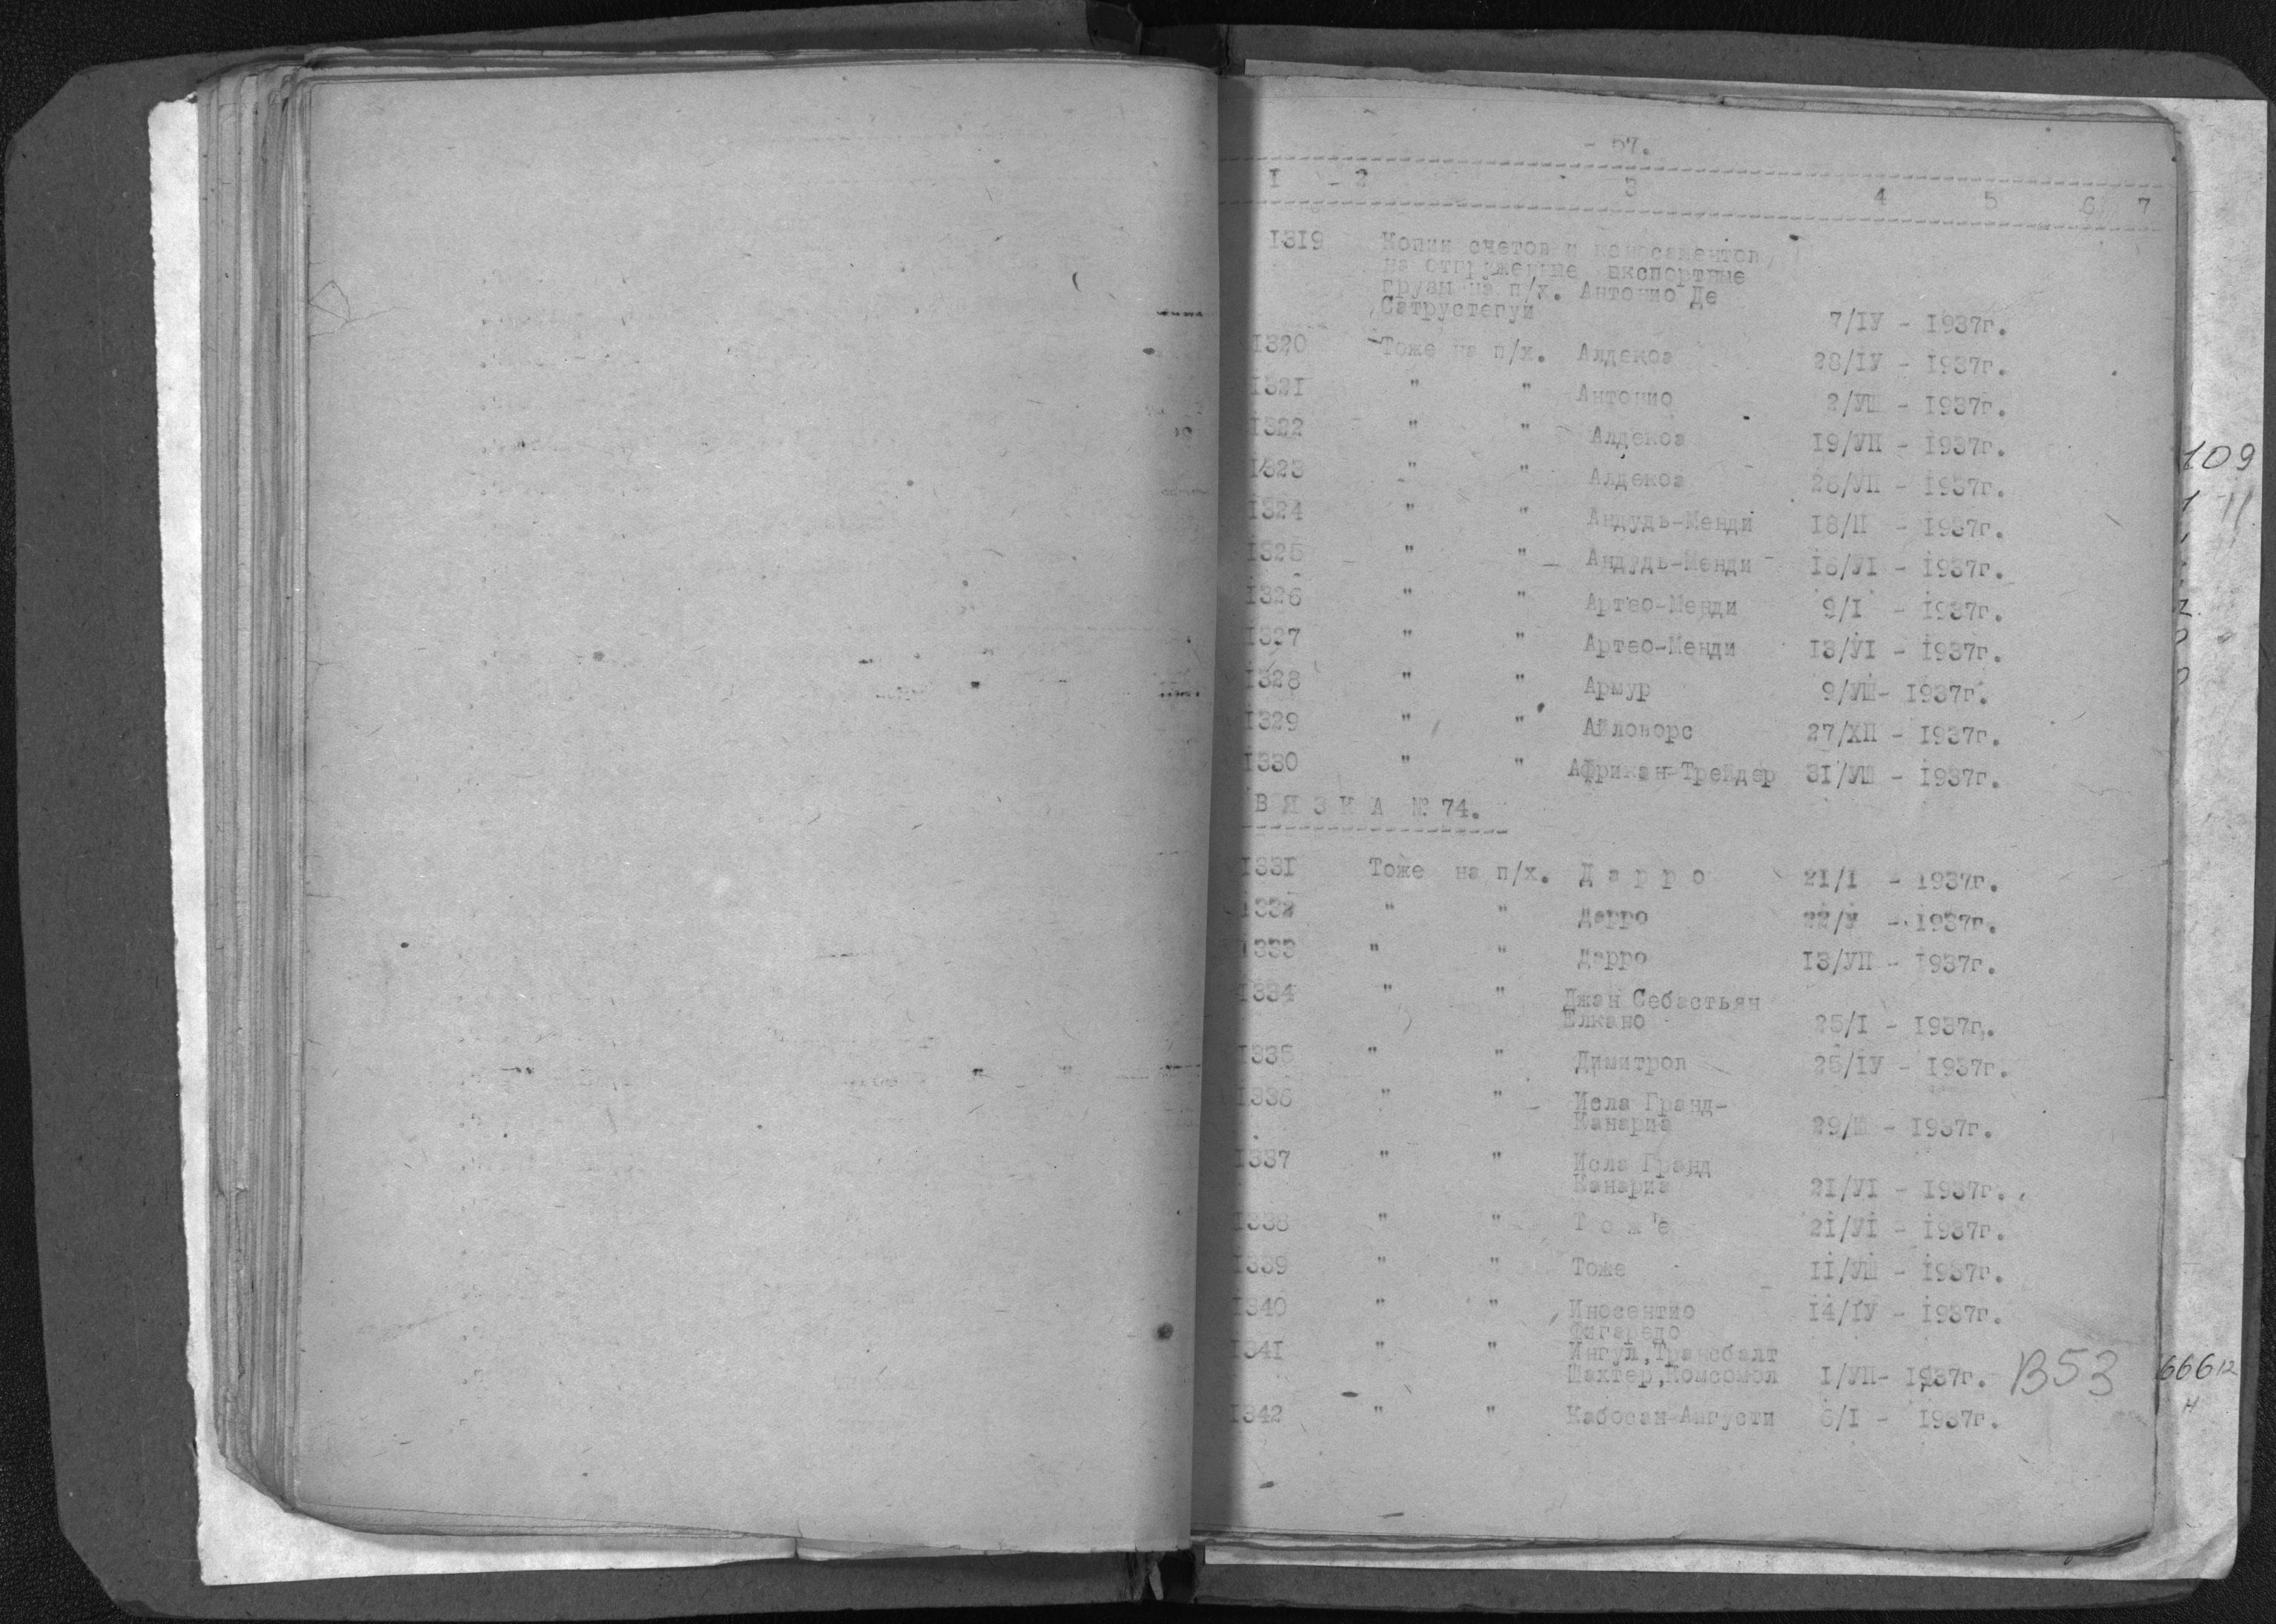 - 57.
I - 2 3 4 5 6 7
I3I9 Копии счетов и коносаментов,
на отгруженные экспортные
грузы на п/х. Антонио Де
Сатрустегуи 7/IУ - I937г.
I320 Тоже на п/х. Алдекоа 28/IУ - I937г.
I32I " " Антонио 2/УШ - I937г.
I322 " " Алдекоа I9/УП - I937г.
I323 " " Алдекоа 26/УП - I937г.
I324 " " Андудь-Менди I8/П - I937г.
I325 " " Андудь-Менди I6/УI - I937г.
I326 " " Артео-Менди 9/I - I937г.
I327 " " Артео-Менди I3/УI - I937г.
I328 " " Армур 9/УШ- I937г.
I329 " " Айловорс 27/ХП - I937г.
I330 " " Африкан-Трейдер 3I/УШ - I937г.
В Я З К А № 74.
I33I Тоже на п/х. Д а р р о 2I/I - I937г.
I332 " " Дарро 22/У - I937г.
I333 " " Дарро I3/УП - I937г.
I334 " " Джан Себастьян
Елкано 25/I - I937г.
I335 " " Димитров 25/IУ - I937г.
I336 " " Исла Гранд-
Канариа 29/Ш - I937г.
I337 " " Исла Гранд
Канариа 2I/УI - I937г.
I338 " " Т о ж е 2I/УI - I937г.
I339 " " Тоже II/УШ - I937г.
I340 " " Иносентио I4/IУ - I937г.
Фигаредо
I34I " " Ингул,Трансбалт
Шахтер,Комсомол I/УП- I937г. В53
I342 " " Кабосан-Августи 6/I - I937г.
109
66612
н